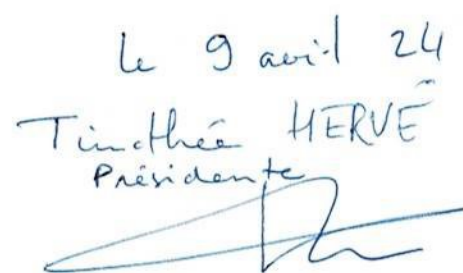 Le 9 avril 24
Timothée HERVÉ
Présidente